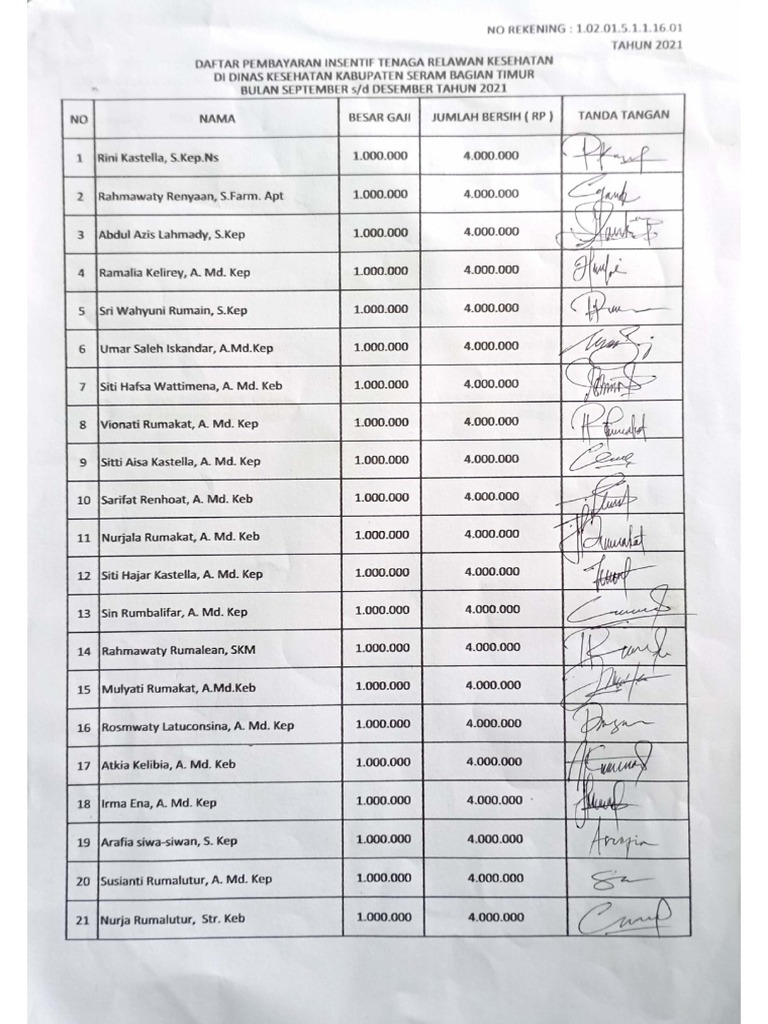 NO REKENING : 1.02.01.5.1.1.16.01
TAHUN 2021
DAFTAR PEMBAYARAN INSENTIF TENAGA RELAWAN KESEHATAN
DI DINAS KESEHATAN KABUPATEN SERAM BAGIAN TIMUR
BULAN SEPTEMBER s/d DESEMBER TAHUN 2021
NO NAMA BESAR GAJI JUMLAH BERSIH ( RP ) TANDA TANGAN
1 Rini Kastella, S.Kep.Ns 1.000.000 4.000.000
2 Rahmawaty Renyaan, S.Farm. Apt 1.000.000 4.000.000
3 Abdul Azis Lahmady, S.Kep 1.000.000 4.000.000
4 Ramalia Kelirey, A. Md. Kep 1.000.000 4.000.000
5 Sri Wahyuni Rumain, S.Kep 1.000.000 4.000.000
6 Umar Saleh Iskandar, A.Md.Kep 1.000.000 4.000.000
7 Siti Hafsa Wattimena, A. Md. Keb 1.000.000 4.000.000
8 Vionati Rumakat, A. Md. Kep 1.000.000 4.000.000
9 Sitti Aisa Kastella, A. Md. Kep 1.000.000 4.000.000
10 Sarifat Renhoat, A. Md. Keb 1.000.000 4.000.000
11 Nurjala Rumakat, A. Md. Keb 1.000.000 4.000.000
12 Siti Hajar Kastella, A. Md. Kep 1.000.000 4.000.000
13 Sin Rumbalifar, A. Md. Kep 1.000.000 4.000.000
14 Rahmawaty Rumalean, SKM 1.000.000 4.000.000
15 Mulyati Rumakat, A.Md.Keb 1.000.000 4.000.000
16 Rosmwaty Latuconsina, A. Md. Kep 1.000.000 4.000.000
17 Atkia Kelibia, A. Md. Keb 1.000.000 4.000.000
18 Irma Ena, A. Md. Kep 1.000.000 4.000.000
19 Arafia siwa-siwan, S. Kep 1.000.000 4.000.000
20 Susianti Rumalutur, A. Md. Kep 1.000.000 4.000.000
21 Nurja Rumalutur, Str. Keb 1.000.000 4.000.000